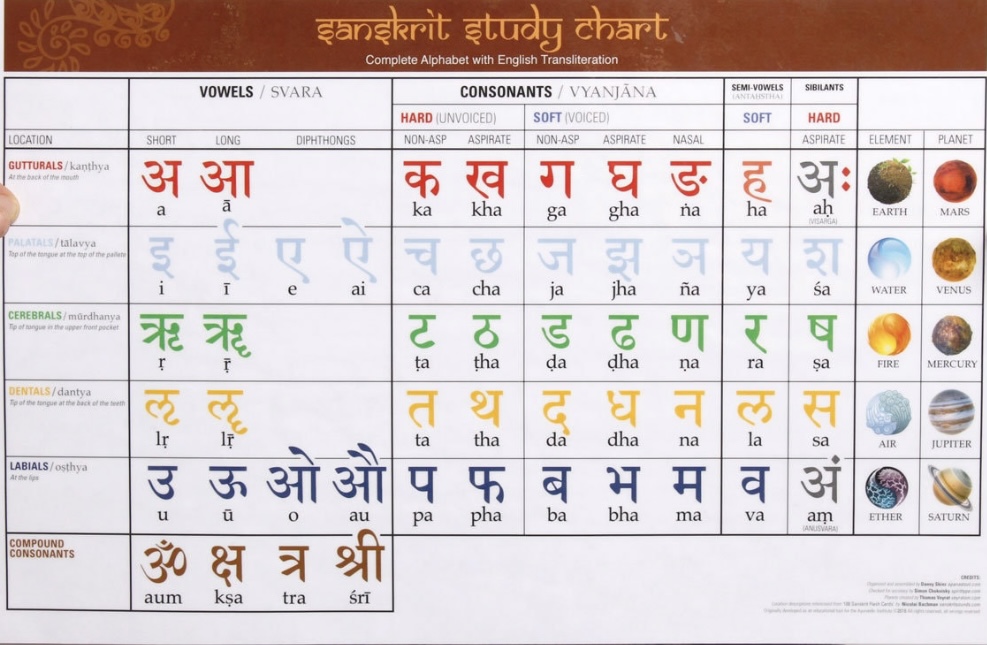 sanskrit study chart
Complete Alphabet with English Transliteration
VOWELS / SVARA CONSONANTS / VYANJĀNA SEMI-VOWELS (ANTAḤSTHA) SIBILANTS
HARD (UNVOICED) SOFT (VOICED) SOFT HARD
LOCATION SHORT LONG DIPHTHONGS NON-ASP ASPIRATE NON-ASP ASPIRATE NASAL ASPIRATE ELEMENT PLANET
GUTTURALS / kaṇṭhya
At the back of the mouth
अ आ क ख ग घ ङ ह अः
a ā ka kha ga gha ṅa ha aḥ EARTH MARS
(VISARGA)
PALATALS / tālavya
Top of the tongue at the top of the pallete
इ ई ए ऐ च छ ज झ ञ य श
i ī e ai ca cha ja jha ña ya śa WATER VENUS
CEREBRALS / mūrdhanya
Tip of tongue in the upper front pocket
ऋ ॠ ट ठ ड ढ ण र ष
ṛ ṝ ṭa ṭha ḍa ḍha ṇa ra ṣa FIRE MERCURY
DENTALS / dantya
Tip of the tongue at the back of the teeth
ऌ ॡ त थ द ध न ल स
lṛ lṝ ta tha da dha na la sa AIR JUPITER
LABIALS / oṣṭhya
At the lips
उ ऊ ओ औ प फ ब भ म व अं
u ū o au pa pha ba bha ma va aṃ ETHER SATURN
(ANUSVARA)
COMPOUND
CONSONANTS
ॐ क्ष त्र श्री
aum kṣa tra śrī
CREDITS: